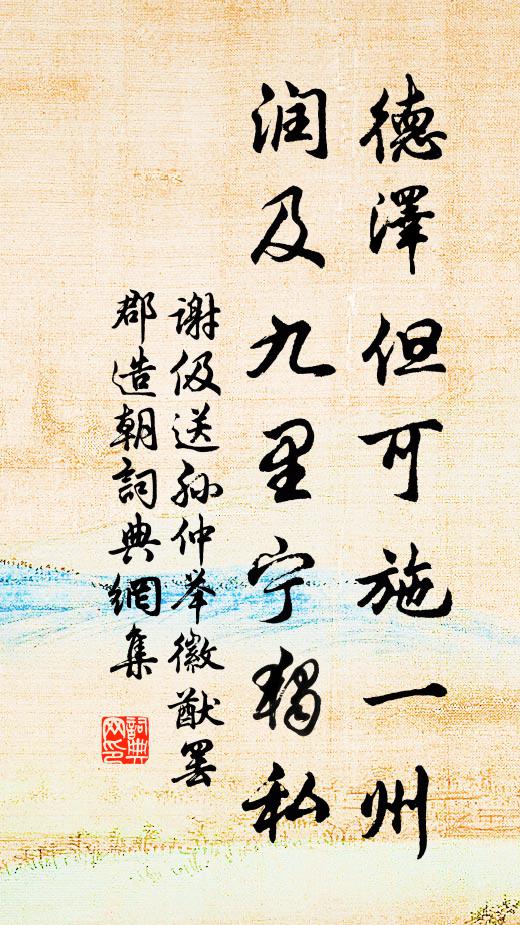 德澤但可施一州
润及九里宁獨私
谢伋送孙仲举徽猷罢
郡造朝詞典網集
詞典網印